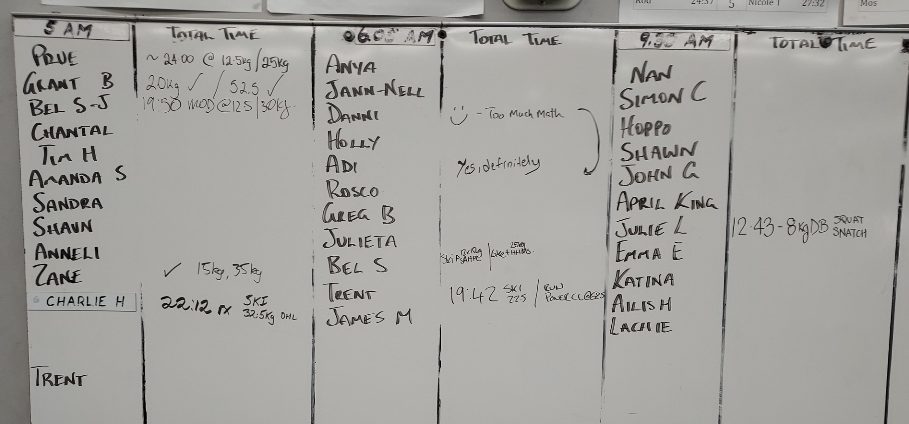 24:37 5 Nicole T 27:32 Mos
5 AM TOTAL TIME 06:00 AM TOTAL TIME 9:30 AM TOTAL TIME
PRUE ~ 24:00 @ 12.5kg/25kg
GRANT B 20kg ✓ / 52.5 ✓
BEL S-J 19:50 MOD @ 12.5/30kg
CHANTAL
TIM H
AMANDA S
SANDRA
SHAUN
ANNELI
ZANE ✓ 15kg, 35kg
CHARLIE H 22:12 rx SKI
32.5kg OHL
TRENT
ANYA
JANN-NELL
DANNI - Too Much Math
HOLLY
ADI Yes, definitely
ROSCO
GREG B
JULIETA
BEL S
TRENT 19:42 SKI 225 / RUN
JAMES M
NAN
SIMON C
HOPPO
SHAWN
JOHN G
APRIL KING
JULIE L 12:43 - 8kg DB SQUAT
SNATCH
EMMA E
KATINA
AILISH
LACHIE